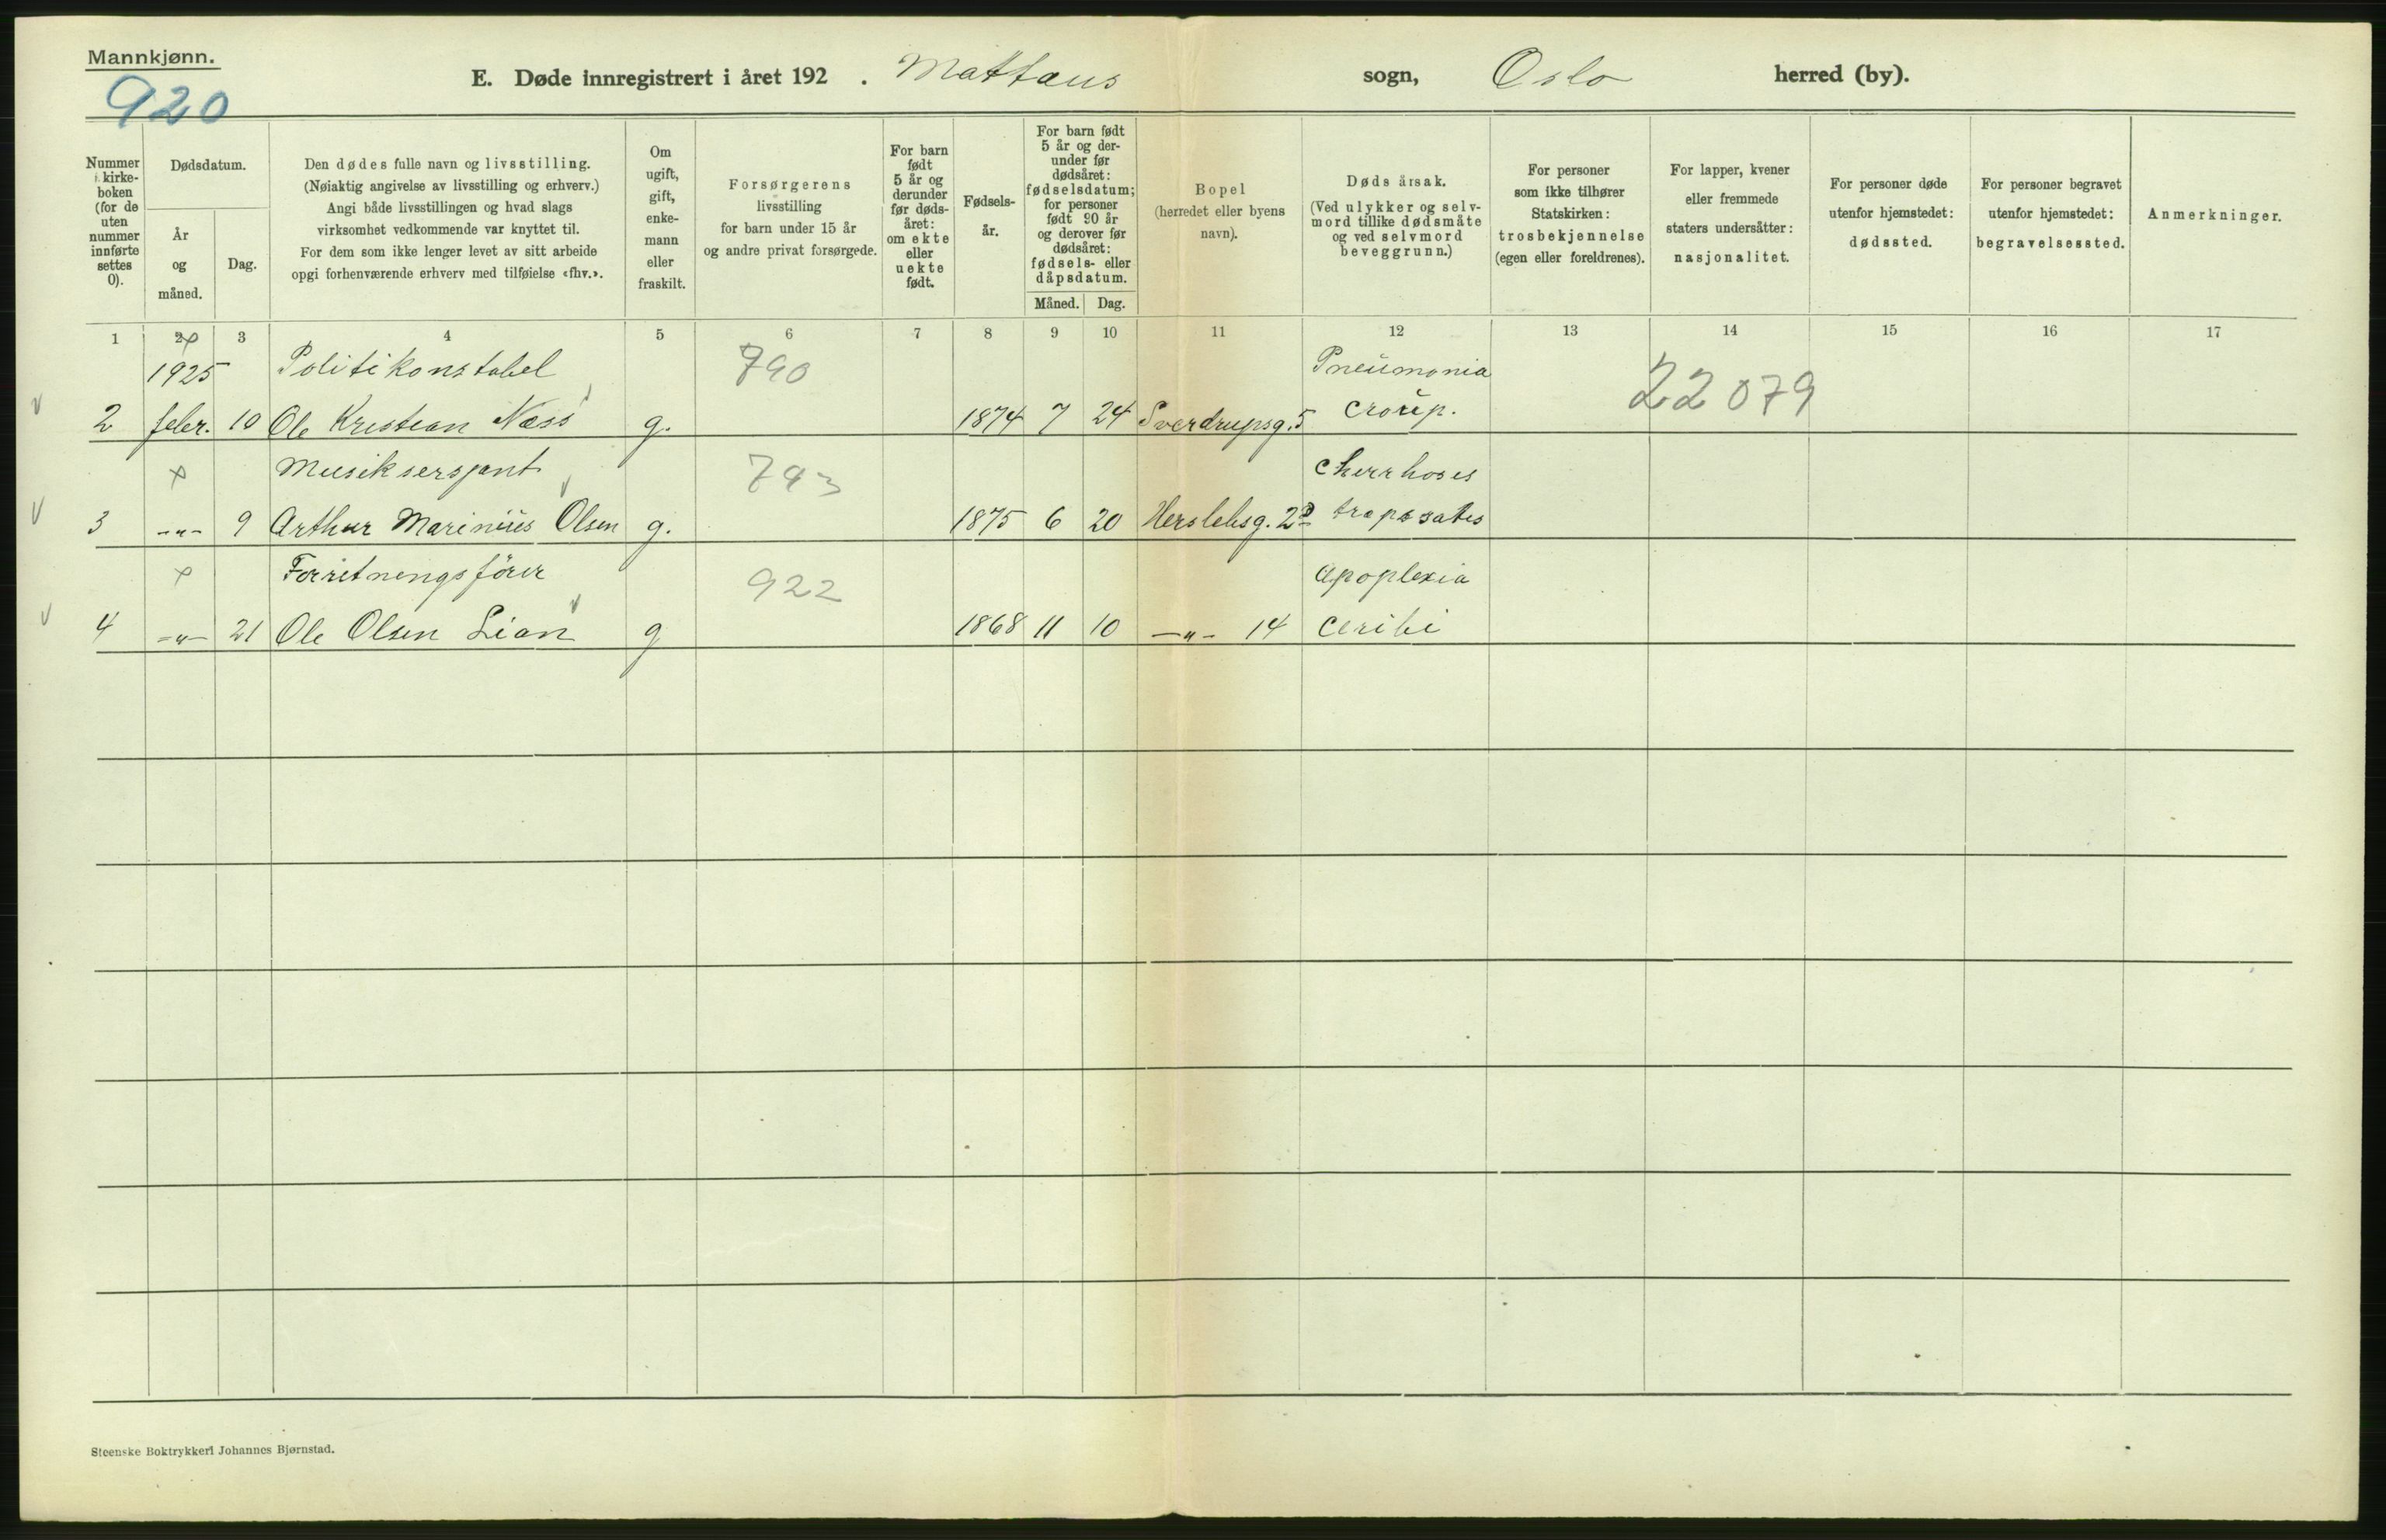 Mannkjønn.
920
E. Døde innregistrert i året 192 . Mattæus sogn, Oslo herred (by).
Nummer i kirkeboken (for de uten nummer innførte settes 0).
Dødsdatum.
År og måned.
Dag.
Den dødes fulle navn og livsstilling.
(Nøiaktig angivelse av livsstilling og erhverv.)
Angi både livsstillingen og hvad slags
virksomhet vedkommende var knyttet til.
For dem som ikke lenger levet av sitt arbeide
opgi forhenværende erhverv med tilføielse «fhv.».
Om ugift, gift, enkemann eller fraskilt.
Forsørgerens
livsstilling
for barn under 15 år
og andre privat forsørgede.
For barn født 5 år og derunder før dødsåret: om ekte eller uekte født.
Fødselsår.
For barn født 5 år og derunder før dødsåret: fødselsdatum; for personer født 90 år og derover før dødsåret: fødsels- eller dåpsdatum.
Måned. Dag.
Bopel
(herredet eller byens
navn).
Dødsårsak.
(Ved ulykker og selvmord tillike dødsmåte og ved selvmord beveggrunn.)
For personer
som ikke tilhører
Statskirken:
trosbekjennelse
(egen eller foreldrenes).
For lapper, kvener
eller fremmede
staters undersåtter:
nasjonalitet.
For personer døde
utenfor hjemstedet:
dødssted.
For personer begravet
utenfor hjemstedet:
begravelsessted.
Anmerkninger.
1 2 3 4 5 6 7 8 9 10 11 12 13 14 15 16 17
1925 Politikonstabel 790 Pneumonia 22079
2 febr. 10 Ole Kristian Næss g. 1874 7 24 Sverdrupsg. 5 croup.
Musiksersjant 793
3 -"- 9 Arthur Marinius Olsen g. 1875 6 20 Herslebsg.
Forretningsfører 922 Apoplexia
4 -"- 21 Ole Olsen Lian g 1868 11 10 -"- 14 ceribi
Steenske Boktrykkeri Johannes Bjørnstad.